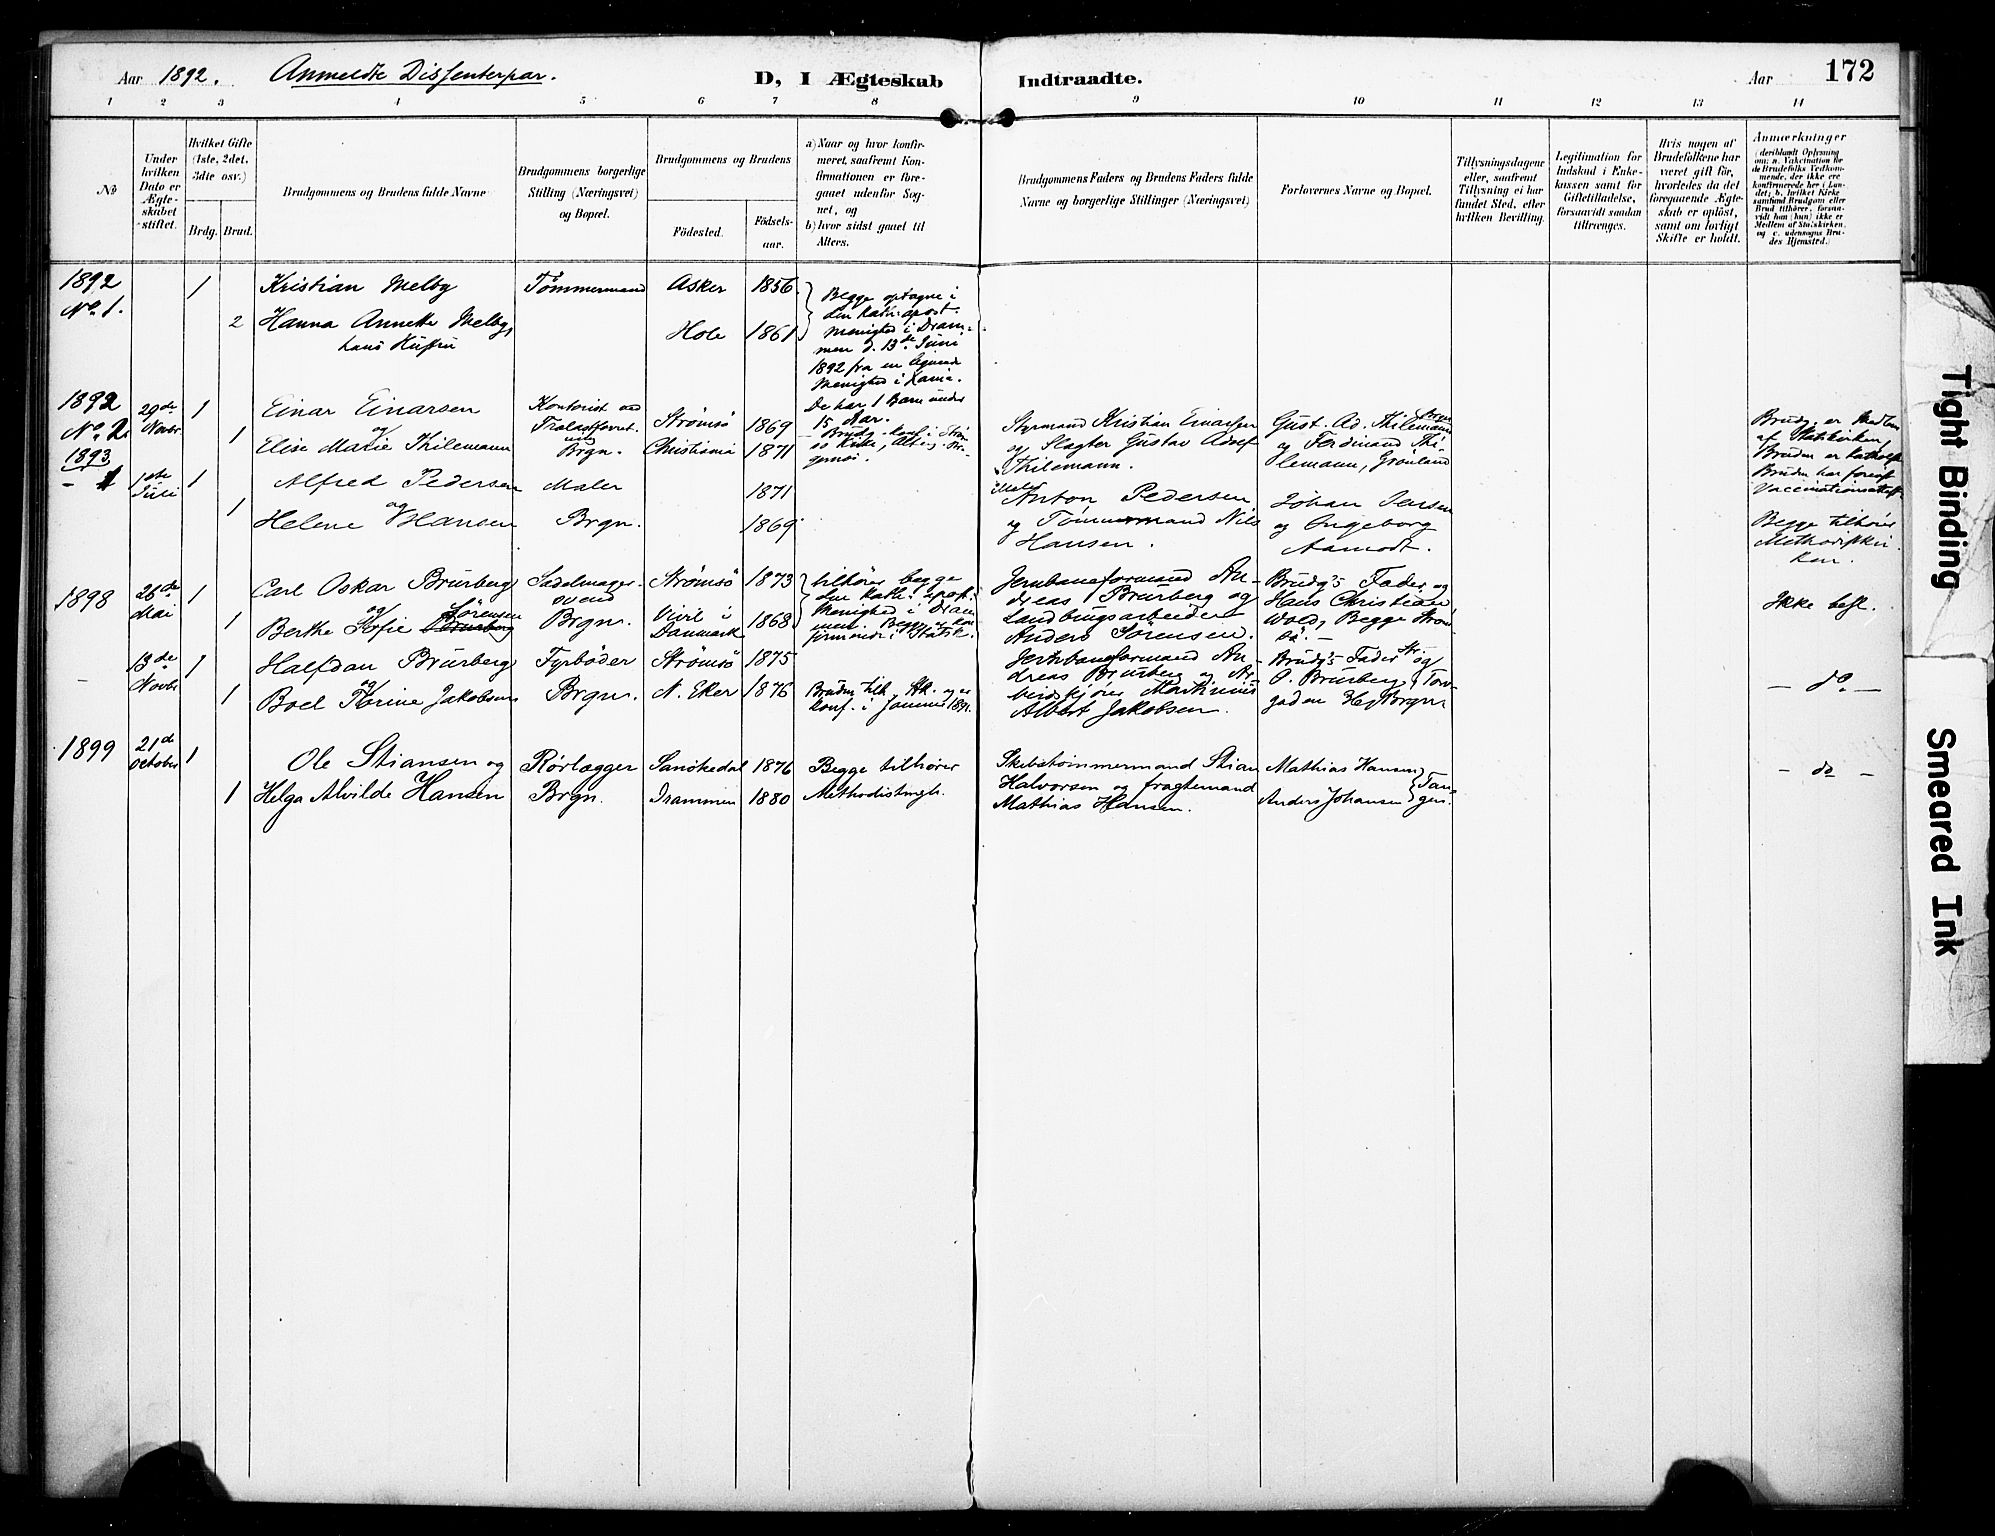 Aar 1892. Anmeldte Dissenterpar. D, I Ægteskab Indtraadte. Aar 172
1 2 3 3 4 5 6 7 8 9 10 11 12 13 14
No
Under hvilken Dato er Ægteskabet stiftet.
Hvilket Gifte (1ste, 2det, 3dte osv.)
Brdg. Brud.
Brudgommens og Brudens fulde Navne
Brudgommens borgerlige Stilling (Næringsvei) og Bopæl.
Brudgommens og Brudens
Fødested. Fødselsaar.
a) Naar og hvor konfirmeret, saafremt Konfirmationen er foregaaet udenfor Sognet, og
b) hvor sidst gaaet til Alters.
Brudgommens Faders og Brudens Faders fulde Navne og borgerlige Stillinger (Næringsvei)
Forlovernes Navne og Bopæl.
Tillysningsdagene eller, saafremt Tillysning ei har fundet Sted, efter hvilken Bevilling.
Legitimation for Indskud i Enkekassen samt for Giftetilladelse, forsaavidt saadan tiltrænges.
Hvis nogen af Brudefolkene har været gift før, hvorledes da det foregaaende Ægteskab er opløst, samt om lovligt Skifte er holdt.
Anmærkninger
(deriblandt Oplysning om: a. Vakcination for de Brudefolks Vedkommende, der ikke ere konfirmerede her i Landet; b. hvilket Kirkesamfund Brudgom eller Brud tilhører, forsaavidt han (hun) ikke er Medlem af Statskirken, og c. udensogns Brudes Hjemsted.)
1892 No. 1.
1 Kristian Melby Tømmermand Asker 1856
2 Hanna Annette Melby, hans Hustru Hole 1861
Begge optagne i
den kath. apost.
Menighed i Drammen
d. 13de Juni
1892 fra en lignende
Menighed i Xania.
De har 1 Barn under
15 Aar.
1892 No. 2. 29de Novbr
1 Einar Einarsen og Kontorist ved Strømsø 1869
1 Elise Marie Thilemann Brgn. Christiania 1871
Brudg. konf. i
Styrmand Kristian Einarsen
og Slagter Gustav Adolf
Thilemann.
Gust. Ad. Thilemann
og Ferdinand Thilemann,
Grønland
Brudg. er
af Statskirken,
Bruden er Katholsk
Bruden har forevist
Vaccinationsattest
1893 – 1 1ste Juli
1 Alfred Pedersen og Maler 1871
1 Helene Hansen Brgn. 1869
Maler Anton Pedersen
og Tømmermand Nils
Hansen.
Johan Jensen
og Ingeborg
Aamodt.
Begge tilhører
Methodistkirken.
1898 26de Mai
1 Carl Oskar Brurberg og Sadelmagersvend Strømsø 1873
1 Berthe Sofie Sørensen Brgn. i Danmark 1868
tilhører begge
den kath. apost.
Menighed i Drammen.
Begge er konfirmerede
i Statsk.
Jernbaneformand Andreas
Brurberg og
Landbrugsarbeider
Anders Sørensen.
Brudg's Fader og
Hans Christian
Wold, Begge Strømsø. –
Ikke besl.
– 13de Novbr
1 Halfdan Brurberg og Fyrbøder Strømsø 1875
1 Boel Karine Jakobsen Brgn. N. Eker 1876
Bruden tilh. Stk. og er
konf. i Sammes 1891.
Jernbaneformand Andreas
Brurberg og Arbeidskjører
Martinius
Albert Jakobsen.
Brudg's Fader og
O. Brurberg, Torvgaden
– do –
1899 21d October
1 Ole Stiansen og Rørlægger Sanökedal 1876
1 Helga Alvilde Hansen Brgn. Drammen 1880
Begge tilhører
Methodistmgh.
Skibstømmermand Stian
Halvorsen og fragtemand
Mathias Hansen.
Mathias Hansen
Anders Johansen
Tangen.
– do –
Tight Binding
Smeared Ink